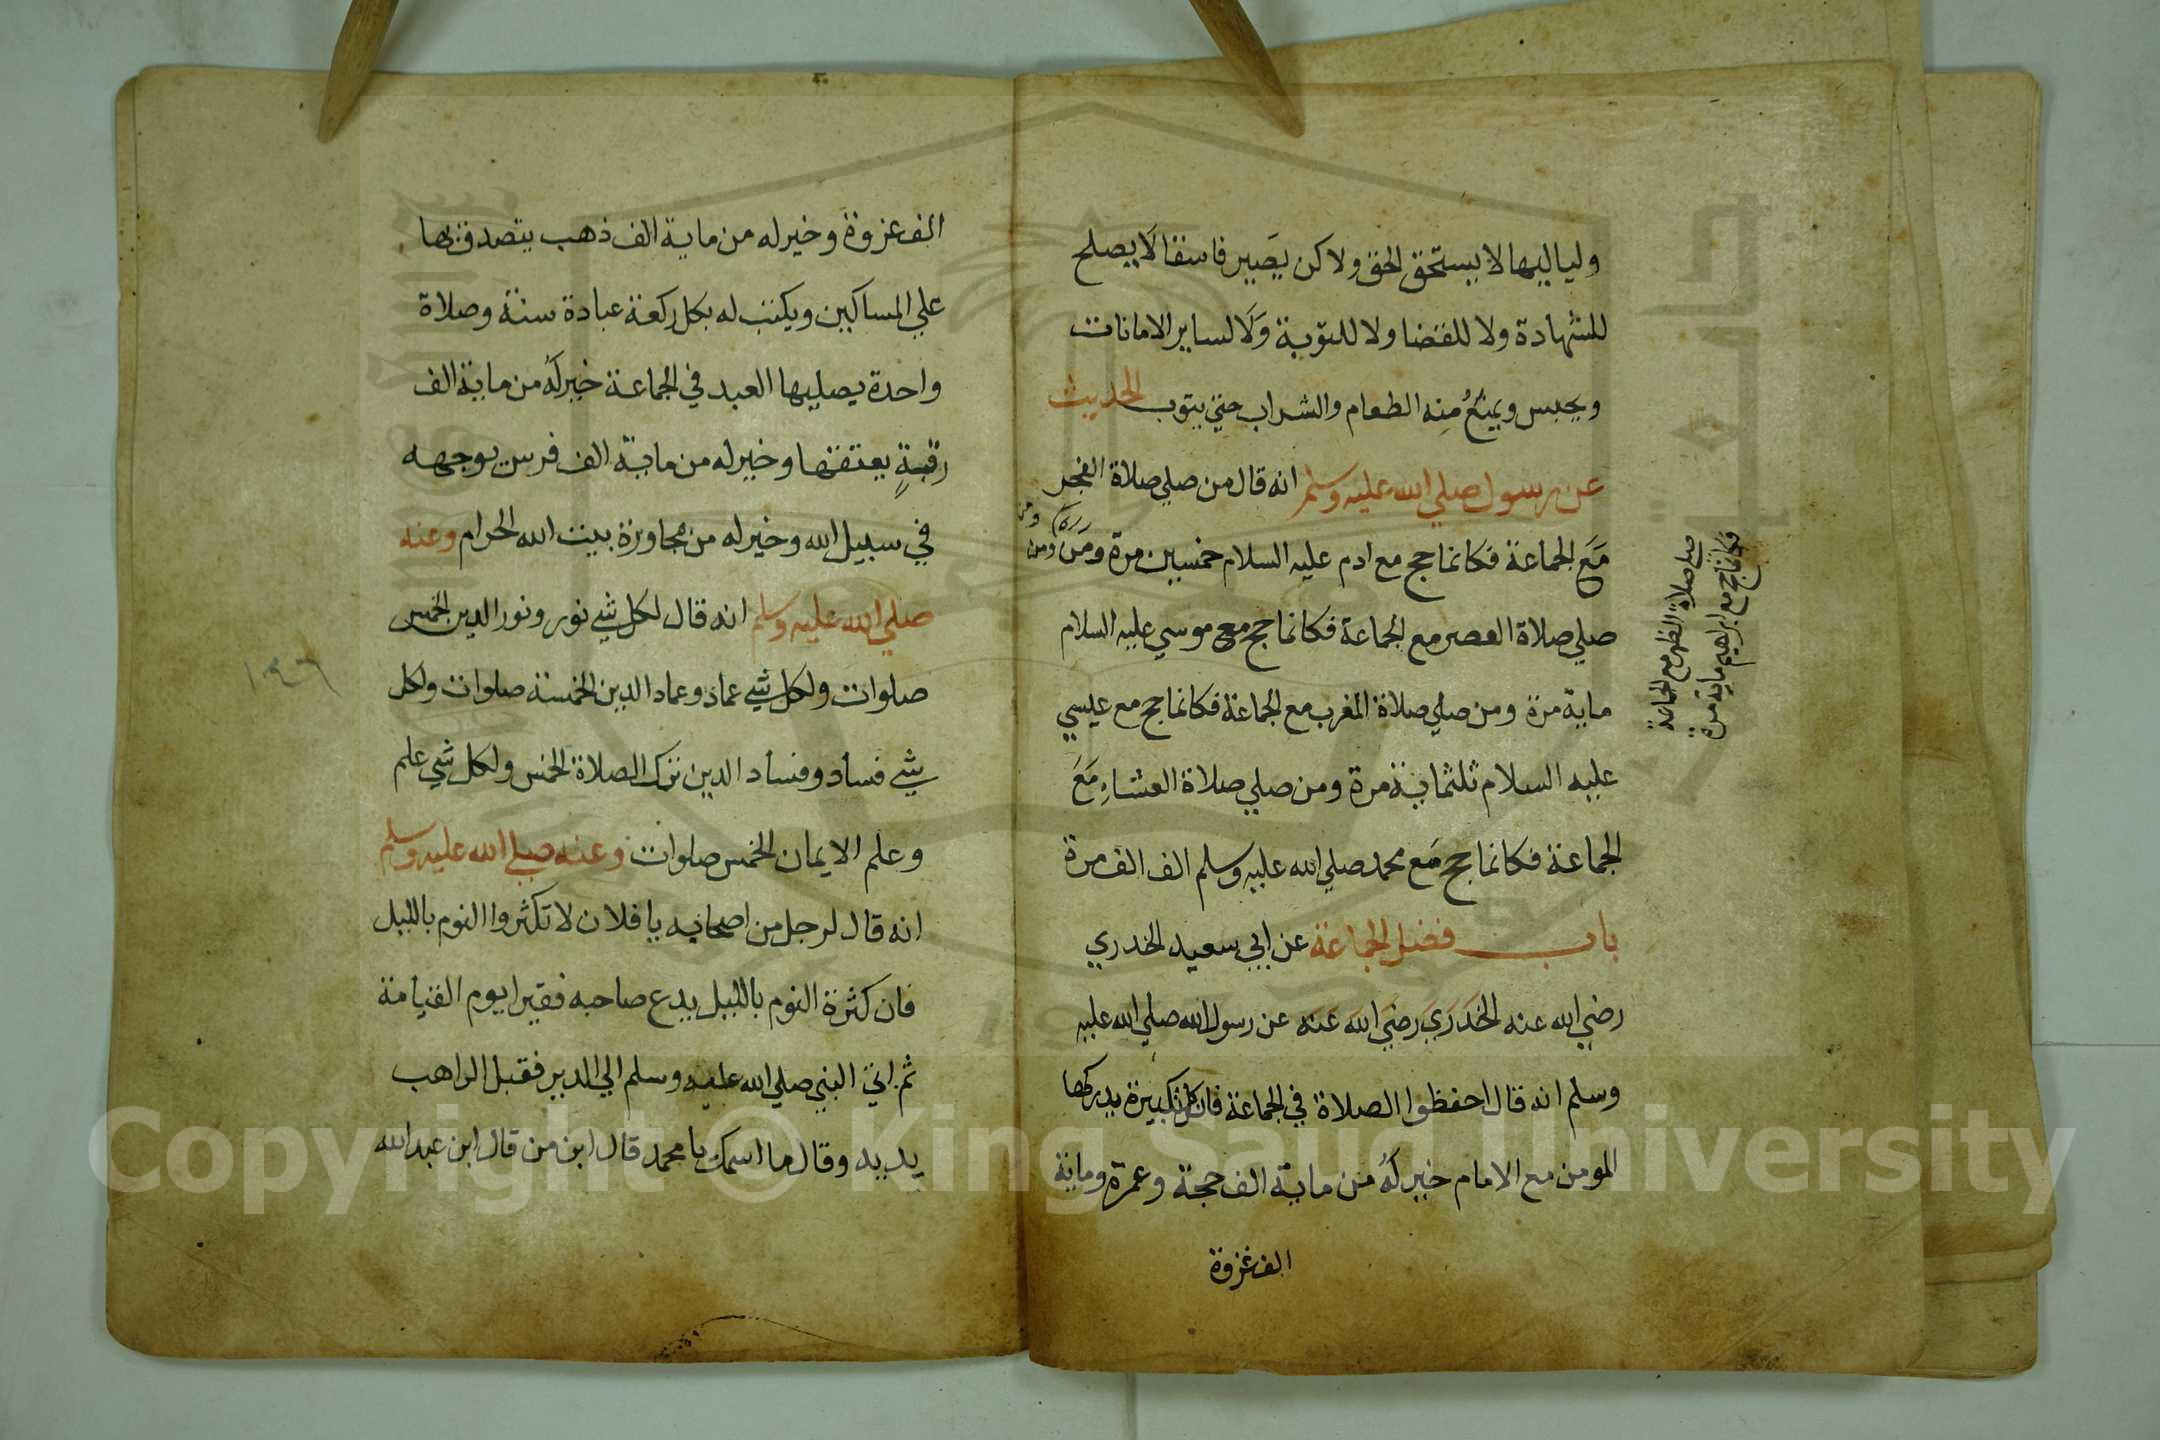 ولياليها لا يستحق الحق ولاكن يَصير فاسقا لَا يصلح
للشهادة ولا للقضا ولا للتوبة وَلَا لساير الامانات
ويحبس ويمنعُ مِنه الطعام والشراب حتي يتوب الحديث
عن رسول صلي الله عليه وسلم انه قال من صلي صلاة الفجر
مَع الجماعة فكانما حج مع ادم عليه السلام خمسين مرة ومَن ومن
صلي صلاة الظهر مع الجماعة
فكانما حج مع ابراهيم ماية مرة
صلي صلاة العصر مع الجماعة فكانما حج مع موسي عليه السلام
ماية مرة ومن صلي صلاة المغرب مع الجماعة فكانما حج مع عيسي
عليه السلام ثلثماية مرة ومن صلي صلاة العشاءِ مَعَ
الجماعة فكانما حج مَع محمد صلي الله عليه وسلم الف الف مرة
باب فضل الجماعة عن ابي سعيد الخدري
رضي الله عنه الخدري رضي الله عنه عن رسول الله صلي الله عليه
وسلم انه قال احفظوا الصلاة في الجماعة فان كل تكبيرة يدركها
المومن مع الامام خير لَهُ من ماية الف حجة وعمرة وماية
الف غزوة
الف غزوة وخير له من ماية الف ذهب يتصدق بها
علي المساكين ويكتب له بكل ركعة عبادة سنة وصلاة
واحدة يصليها العبد في الجماعة خير لَهُ من ماية الف
رقبةٍ يعتقها وخير له من ماية الف فرس يوجهه
في سبيل الله وخير له من مجاورة بيت الله الحرام وعنه
صلي الله عليه وسلم انه قال لكل شي نور ونور الدين الخمس
صلوات ولكل شي عماد وعماد الدين الخمسة صلوات ولكل
شي فساد وفساد الدين ترك الصلاة الخمس ولكل شي علم
وعلم الايمان الخمس صلوات وعنه صلي الله عليه وسلم
انه قال لرجل من اصحابه يا فلان لا تكثروا النوم بالليل
فان كثرة النوم بالليل يدع صاحبه فقيرا يوم القيامة
ثم اتي النبي صلي الله عليه وسلم الي الدير فقبل الراهب
يديه وقال ما اسمك يا محمد قال ابن من قال ابن عبد الله
١٩٦
Copyright © King Saud University